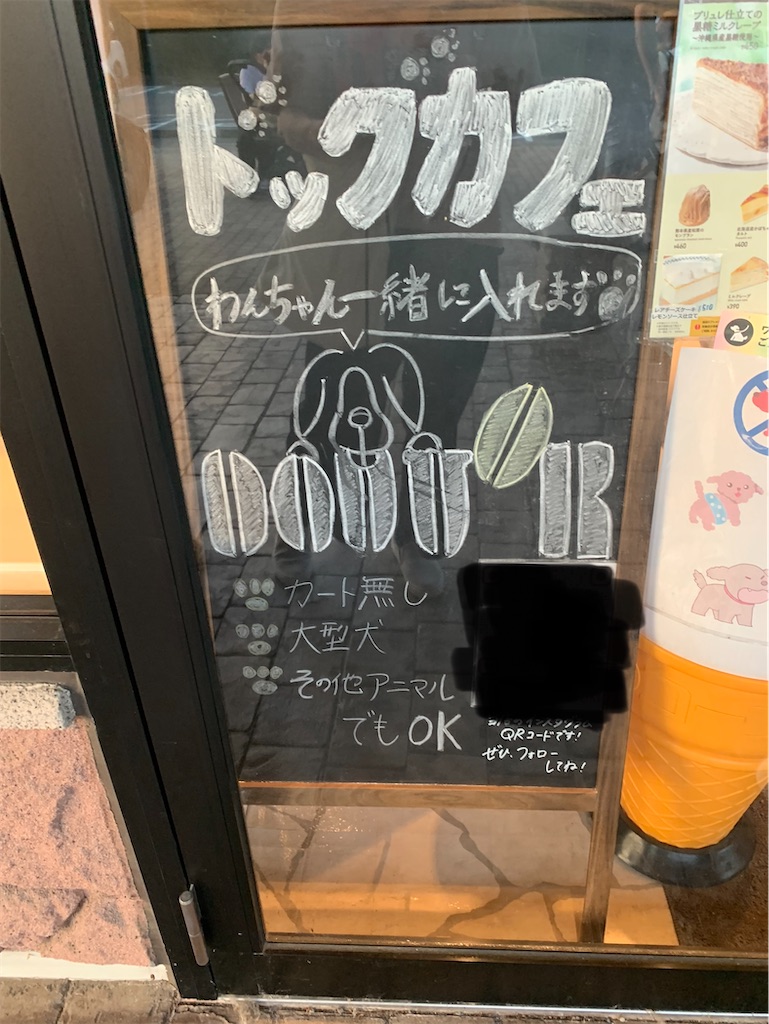 ドッグカフェ
わんちゃん一緒に入れます
DOUTOR
カート無し
大型犬
その他アニマル
でもOK
QRコードです!
ぜひ、フォロー
してね!
ブリュレ仕立ての
黒糖ミルクレープ
~沖縄県産黒糖使用~
¥460
¥400
ミルクレープ
¥390
レアチーズケーキ
レモンソース仕立て